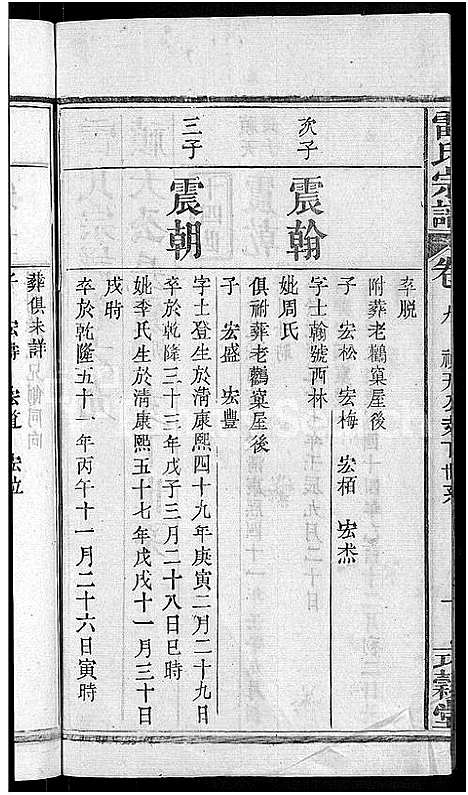 雷氏宗譜
卷九
卒脱
附葬老鸛窠屋後
子 宏松 宏梅 宏栢 宏杰
次子
震翰
字士翰號西林
妣周氏
俱祔葬老鸛窠屋後
子 宏盛 宏豐
三子
震朝
字士登生於清康熙四十九年庚寅二月二十九日
卒於乾隆三十三年戊子三月二十八日巳時
妣李氏生於清康熙五十七年戊戌十一月三十日
戌時
卒於乾隆五十一年丙午十一月二十六日寅時
葬俱未詳